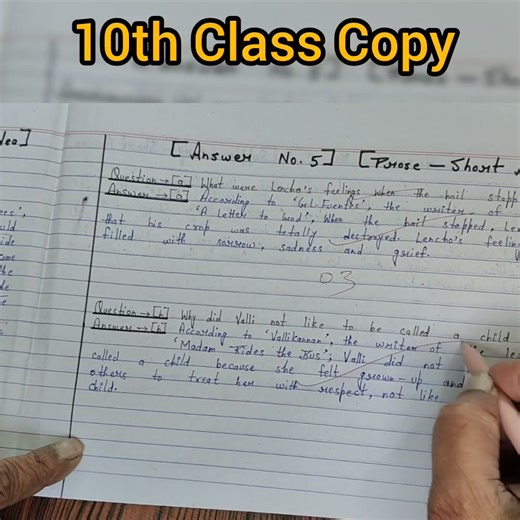 10th Class Copy
dea]
[Answer No. 5] [Prose - Short
Question → [a] What were Lencho's feelings when the hail stopp
Answer → [a] According to 'G.L. Fuentes', the writer of
'A Letter to God', When the hail stopped, Len
that his crop was totally destroyed. Lencho's feelin
filled with sorrow, sadness and grief.
03
Question → [b] Why did Valli not like to be called a child
Answer → [b] According to 'Vallikannan', the writer of the les
'Madam Rides the Bus', Valli did not
called a child because she felt grown-up and
others to treat her with respect, not like
child.